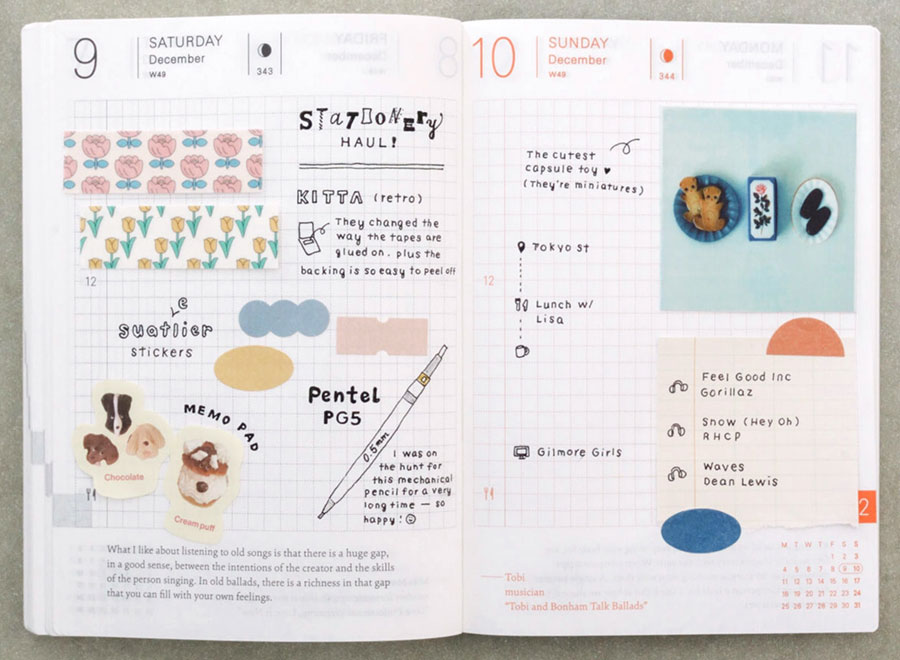 9
SATURDAY
December
W49
343
STATIONERY
HAUL!
KITTA (retro)
They changed the
way the tapes are
glued on. plus the
backing is so easy to peel off
12
e
suatlier
stickers
MEMO PAD
Chocolate
Cream puff
Pentel
PG5
0.5mm
I was on
the hunt for
this mechanical
pencil for a very
long time — so
happy!
What I like about listening to old songs is that there is a huge gap,
in a good sense, between the intentions of the creator and the skills
of the person singing. In old ballads, there is a richness in that gap
that you can fill with your own feelings.
10
SUNDAY
December
W49
344
The cutest
capsule toy ♥
(They're miniatures)
Tokyo st
12
Lunch w/
Lisa
Gilmore Girls
Feel Good Inc
Gorillaz
Snow (Hey Oh)
RHCP
Waves
Dean Lewis
2
M T W T F S S
1 2 3
4 5 6 7 8 9 10
11 12 13 14 15 16 17
18 19 20 21 22 23 24
25 26 27 28 29 30 31
— Tobi
musician
"Tobi and Bonham Talk Ballads"